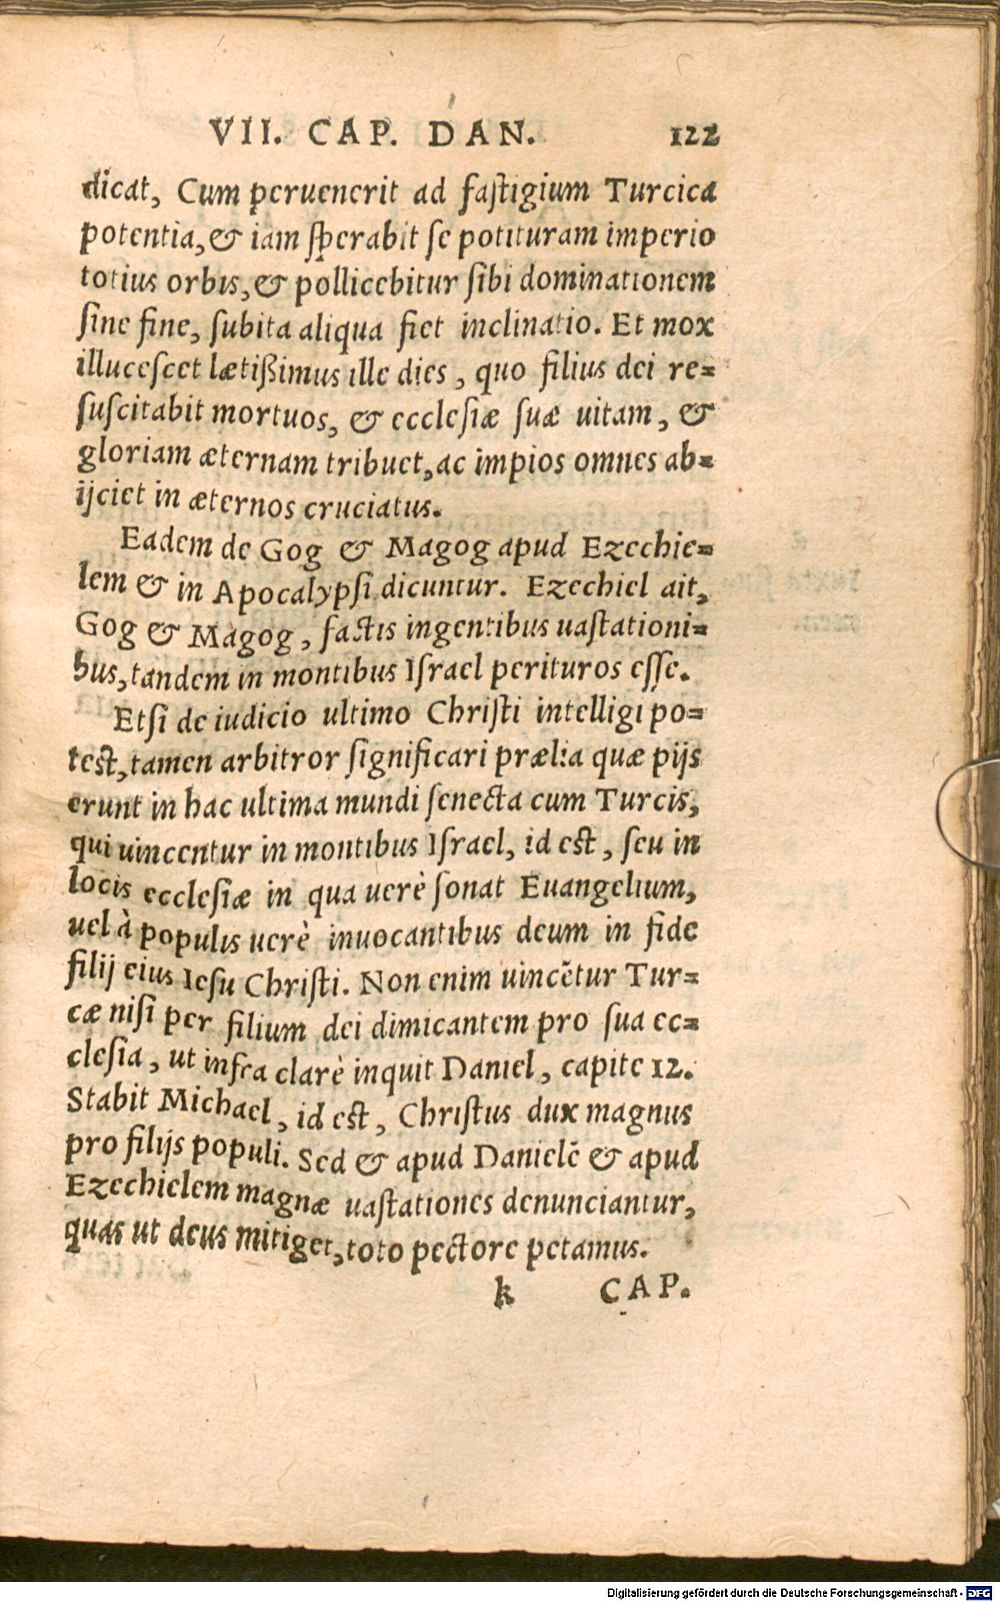 VII. CAP. DAN. 122
dicat, Cum peruenerit ad faſtigium Turcica
potentia, & iam ſperabit ſe potituram imperio
totius orbis, & pollicebitur ſibi dominationem
ſine fine, ſubita aliqua fiet inclinatio. Et mox
illuceſcet lætiſsimus ille dies, quo filius dei re=
ſuſcitabit mortuos, & eccleſiæ ſuæ uitam, &
gloriam æternam tribuet, ac impios omnes ab=
ijciet in æternos cruciatus.
Eadem de Gog & Magog apud Ezechie=
lem & in Apocalypſi dicuntur. Ezechiel ait,
Gog & Magog, factis ingentibus uaſtationi=
bus, tandem in montibus Iſrael perituros eſſe.
Etſi de iudicio ultimo Chriſti intelligi po=
teſt, tamen arbitror ſignificari prælia quæ pijs
erunt in hac ultima mundi ſenecta cum Turcis,
qui uincentur in montibus Iſrael, id eſt, ſeu in
locis eccleſiæ in qua uerè ſonat Euangelium,
uel à populis uerè inuocantibus deum in fide
filij eius Ieſu Chriſti. Non enim uincẽtur Tur=
cæ niſi per filium dei dimicantem pro ſua ec=
cleſia, ut infra clarè inquit Daniel, capite 12.
Stabit Michael, id eſt, Chriſtus dux magnus
pro filijs populi. Sed & apud Danielẽ & apud
Ezechielem magnæ uaſtationes denunciantur,
quas ut deus mitiget, toto pectore petamus.
k CAP.
Digitalisierung gefördert durch die Deutsche Forschungsgemeinschaft - DFG